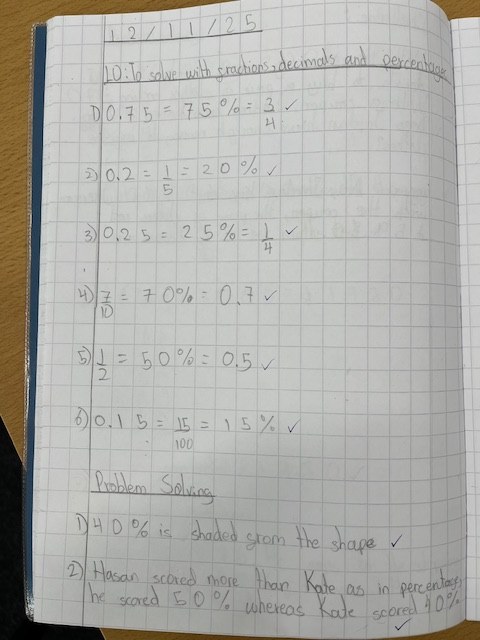 12/11/25
LO: To solve with fractions, decimals and percentages
1) 0.75 = 75% = 3/4 ✓
2) 0.2 = 1/5 = 20% ✓
3) 0.25 = 25% = 1/4 ✓
4) 7/10 = 70% = 0.7 ✓
5) 1/2 = 50% = 0.5 ✓
6) 0.15 = 15/100 = 15% ✓
Problem Solving
1) 40% is shaded from the shape ✓
2) Hasan scored more than Kate as in percentages
he scored 50% whereas Kate scored 40% ✓